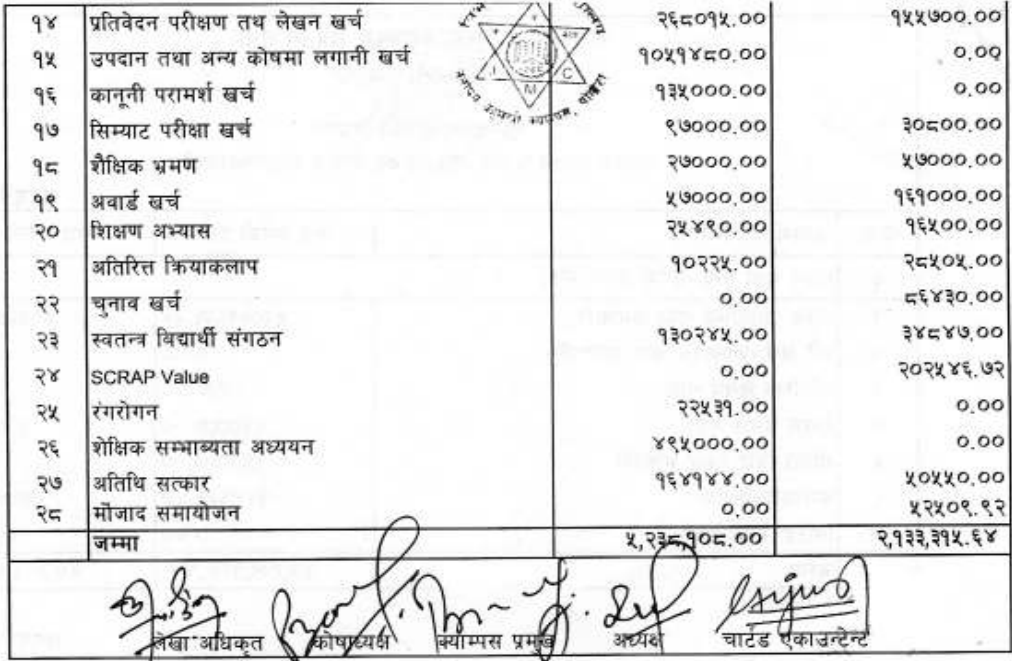 १४ प्रतिवेदन परीक्षण तथ लेखन खर्च २६८०१५.०० १५५७००.००
१५ उपदान तथा अन्य कोषमा लगानी खर्च १०५१४८०.०० ०.००
१६ कानूनी परामर्श खर्च १३५०००.०० ०.००
१७ सिम्याट परीक्षा खर्च ९७०००.०० ३०८००.००
१८ शैक्षिक भ्रमण २७०००.०० ५७०००.००
१९ अवार्ड खर्च ५७०००.०० १६१०००.००
२० शिक्षण अभ्यास २५४९०.०० १६५००.००
२१ अतिरित्त क्रियाकलाप १०२२५.०० २८५०५.००
२२ चुनाव खर्च ०.०० ८६४३०.००
२३ स्वतन्त्र विद्यार्थी संगठन १३०२४५.०० ३४८४७.००
२४ SCRAP Value ०.०० २०२५४६.७२
२५ रंगरोगन २२५३१.०० ०.००
२६ शेक्षिक सम्भाब्यता अध्ययन ४९५०००.०० ०.००
२७ अतिथि सत्कार १६४१४४.०० ५०५५०.००
२८ मौजाद समायोजन ०.०० ५२५०९.९२
जम्मा ५,२३८,१०८.०० २,१३३,३१५.६४
लेखा अधिकृत कोषाध्यक्ष क्याम्पस प्रमुख अध्यक्ष चार्टड एकाउन्टेन्ट